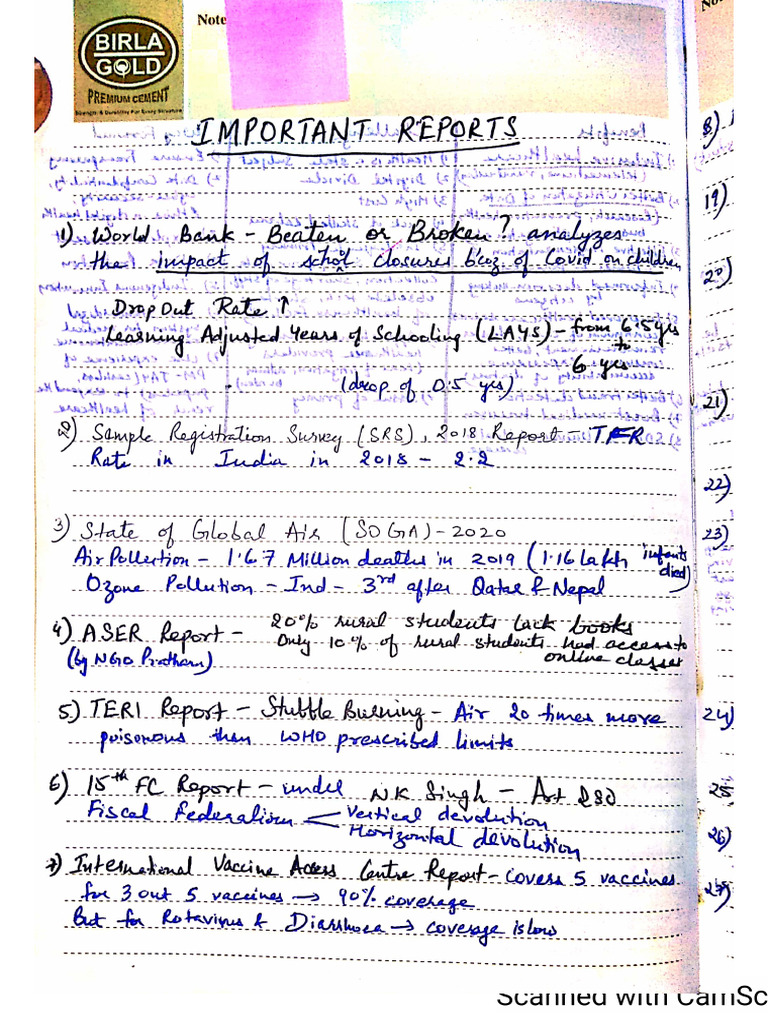 BIRLA
GOLD
PREMIUM CEMENT
Strength & Durability For Every Structure
Note
IMPORTANT REPORTS
1) World Bank - Beaten or Broken? analyzes
the impact of schol closures b'coz of Covid on children
Drop Out Rate ↑
Learning Adjusted Years of Schooling (LAYS) - from 6.5 yrs
to
6 yrs
(drop of 0.5 yrs)
2) Sample Registration Survey (SRS), 2018 Report - TFR
Rate in India in 2018 - 2.2
3) State of Global Air (SOGA) - 2020
Air Pollution - 1.67 Million deaths in 2019 (1.16 lakh infants
died)
Ozone Pollution - Ind - 3rd after Qatar & Nepal
4) ASER Report - 20% rural students lack books
Only 10% of rural students had access to
(by NGO Pratham) online classes
5) TERI Report - Stubble Burning - Air 20 times more
poisonous than WHO prescribed limits
6) 15th FC Report - under NK Singh - Art 280
Fiscal Federalism < Vertical devolution
Horizontal devolution
7) International Vaccine Access Centre Report - covers 5 vaccines
for 3 out 5 vaccines → 90% coverage
But for Rotavirus & Diarrhoea → coverage is low
19)
20)
21)
22)
23)
24)
25
26)
Scanned with CamSc